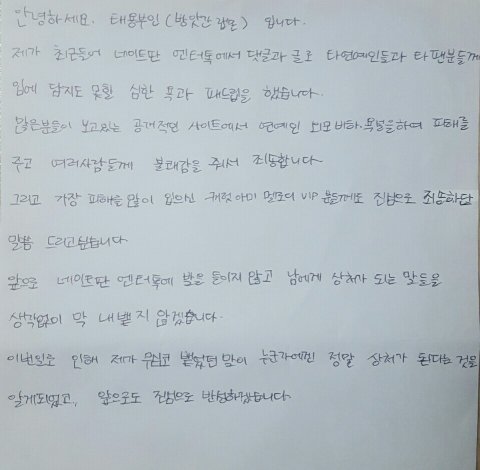 안녕하세요. 태용부인 (방앗간 잡은) 입니다.
제가 최근들어 네이트판 엔터톡에서 댓글과 글로 타연예인들과 타팬분들께
입에 담지도 못할 심한 욕과 패드립을 했습니다.
많은분들이 보고있는 공개적인 사이트에서 연예인 외모비하, 욕설을하여 피해를
주고 여러사람들께 불쾌감을 줘서 죄송합니다
그리고 가장 피해를 많이 입으신 캐럿 아미 멜로디 VIP 분들께도 진심으로 죄송하단
말씀 드리고싶습니다.
앞으로 네이트판 엔터톡에 발을 들이지 않고 남에게 상처가 되는 말들을
생각없이 막 내뱉지 않겠습니다.
이번일로 인해 제가 무심코 뱉었던 말이 누군가에겐 정말 상처가 된다는 것을
알게되었고, 앞으로도 진심으로 반성하겠습니다.